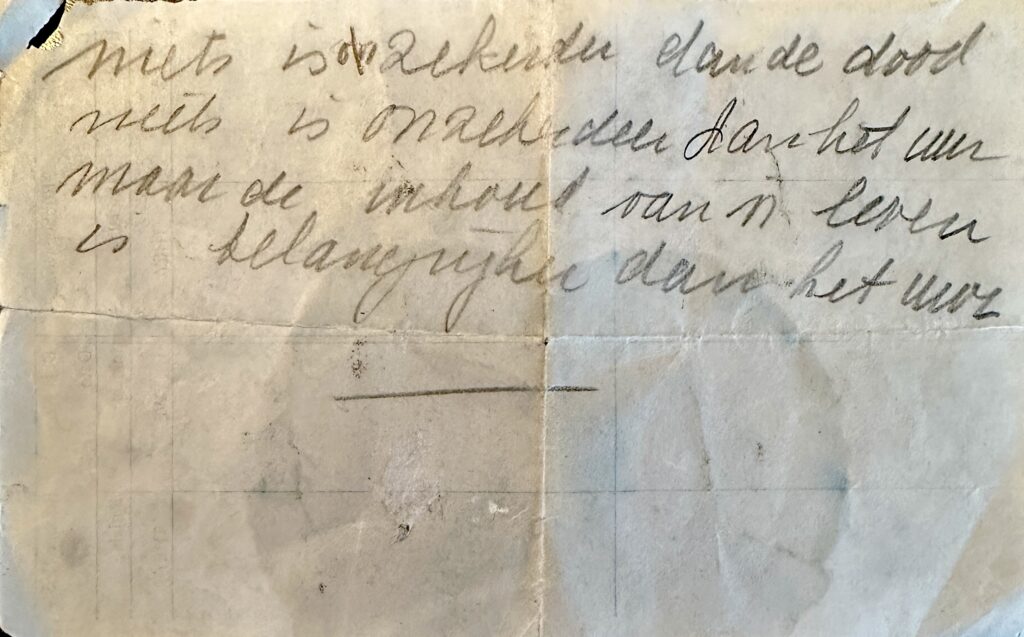 niets is onzekerder dan de dood
niets is onzekerder dan het uur
maar de inhoud van n leven
is belangrijker dan het uur